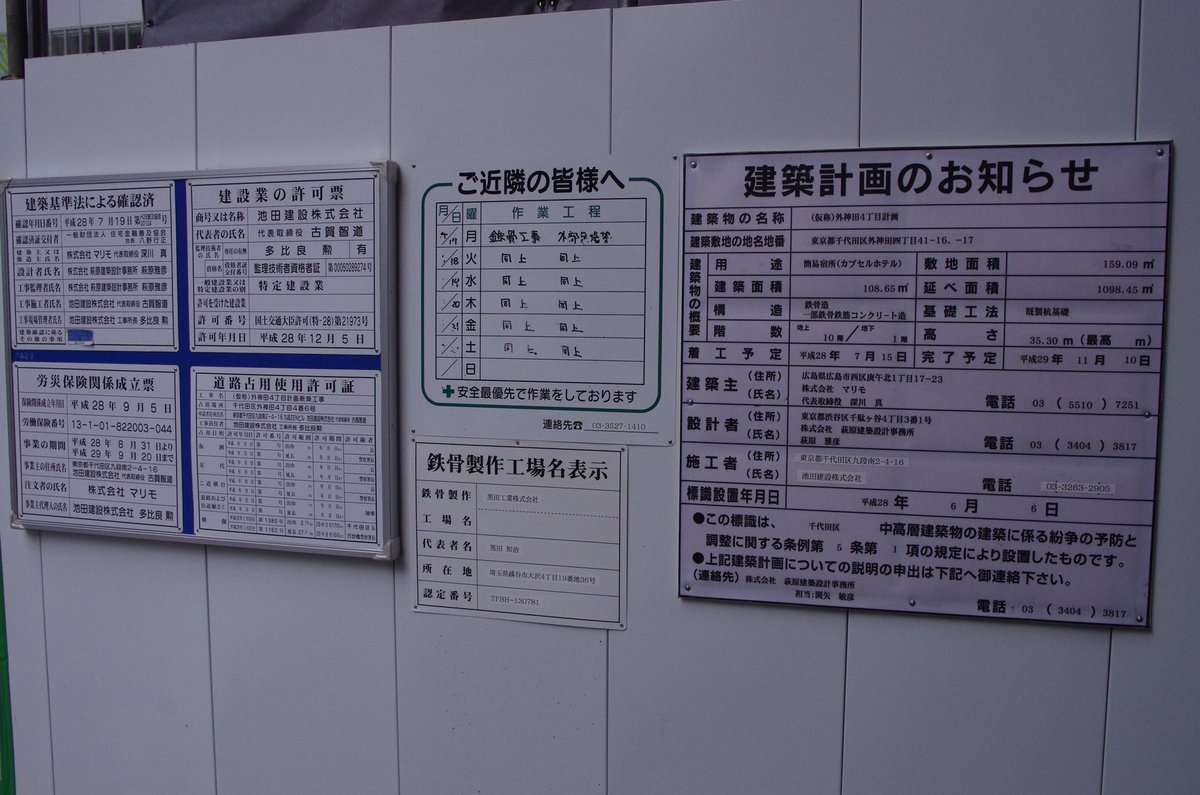 建築基準法による確認済
確認年月日番号 平成28年7月19日
確認済証交付者 一般財団法人 住宅金融普及協会
会長 八野行正
建築主又は築造主氏名 株式会社 マリモ 代表取締役 深川 真
設計者氏名 株式会社 萩原建築設計事務所 萩原雅彦
工事監理者氏名 株式会社 萩原建築設計事務所 萩原雅彦
工事施工者氏名 池田建設株式会社 代表取締役 古賀智道
工事現場管理者氏名 池田建設株式会社 工事所長 多比良 勲
建築確認に係るその他の事項
建設業の許可票
商号又は名称 池田建設株式会社
代表者の氏名 代表取締役 古賀智道
監理技術者の氏名 専任の有無 多比良 勲 有
資格名 資格者証交付番号 監理技術者資格者証 第00050289274号
一般建設業又は特定建設業の別 特定建設業
許可を受けた建設業
許可番号 国土交通大臣許可(特-28)第21973号
許可年月日 平成28年12月5日
労災保険関係成立票
保険関係成立年月日 平成28年9月5日
労働保険番号 13-1-01-822003-044
事業の期間 平成28年8月31日より
平成29年9月20日まで
事業主の住所氏名 東京都千代田区九段南2-4-16
池田建設株式会社 代表取締役 古賀智道
注文者の氏名 株式会社 マリモ
事業主代理人の氏名 池田建設株式会社 多比良 勲
道路占用使用許可証
工事名 (仮称)外神田4丁目計画新築工事
占用場所 千代田区外神田4丁目4番6号
工事責任者 池田建設株式会社 工事所長 多比良勲
占用目的 許可年月日 許可番号 許可範囲 許可期間 許可者
ご近隣の皆様へ
月/日 曜 作業工程
月 鉄骨工事
火 同上 同上
水 同上 同上
木 同上 同上
金 同上 同上
土 同上 同上
日
安全最優先で作業をしております
連絡先☎ 03-3527-1410
鉄骨製作工場名表示
鉄骨製作 黒田工業株式会社
工場名
代表者名 黒田 知治
所在地 埼玉県越谷市大沢4丁目19番地36号
認定番号 TFBH-130781
建築計画のお知らせ
建築物の名称 (仮称)外神田4丁目計画
建築敷地の地名地番 東京都千代田区外神田四丁目41-16、-17
建築物の概要
用途 簡易宿所(カプセルホテル) 敷地面積 159.09㎡
建築面積 108.65㎡ 延べ面積 1098.45㎡
構造 鉄骨造
一部鉄骨鉄筋コンクリート造 基礎工法 既製杭基礎
階数 地上 10階/地下 1階 高さ 35.30m(最高 m)
着工予定 平成28年 7月15日 完了予定 平成29年 11月 10日
建築主 (住所) 広島県広島市西区庚午北1丁目17-23
(氏名) 株式会社 マリモ
代表取締役 深川 真 電話 03 (5510) 7251
設計者 (住所) 東京都渋谷区千駄ヶ谷4丁目3番1号
(氏名) 株式会社 萩原建築設計事務所
萩原 雅彦 電話 03 (3404) 3817
施工者 (住所) 東京都千代田区九段南2-4-16
(氏名) 池田建設株式会社 電話 03-3263-2905
標識設置年月日 平成28年 6月 6日
●この標識は、 千代田区 中高層建築物の建築に係る紛争の予防と
調整に関する条例第 5 条第 1 項の規定により設置したものです。
●上記建築計画についての説明の申出は下記へ御連絡下さい。
(連絡先) 株式会社 萩原建築設計事務所
担当:関矢 敏彦 電話:03 (3404) 3817